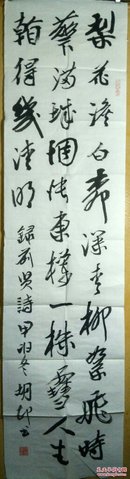 梨花淡白柳深青柳絮飛時
花滿城惆悵東欄一株雪人生
看得幾清明 詩 甲午冬 胡 書